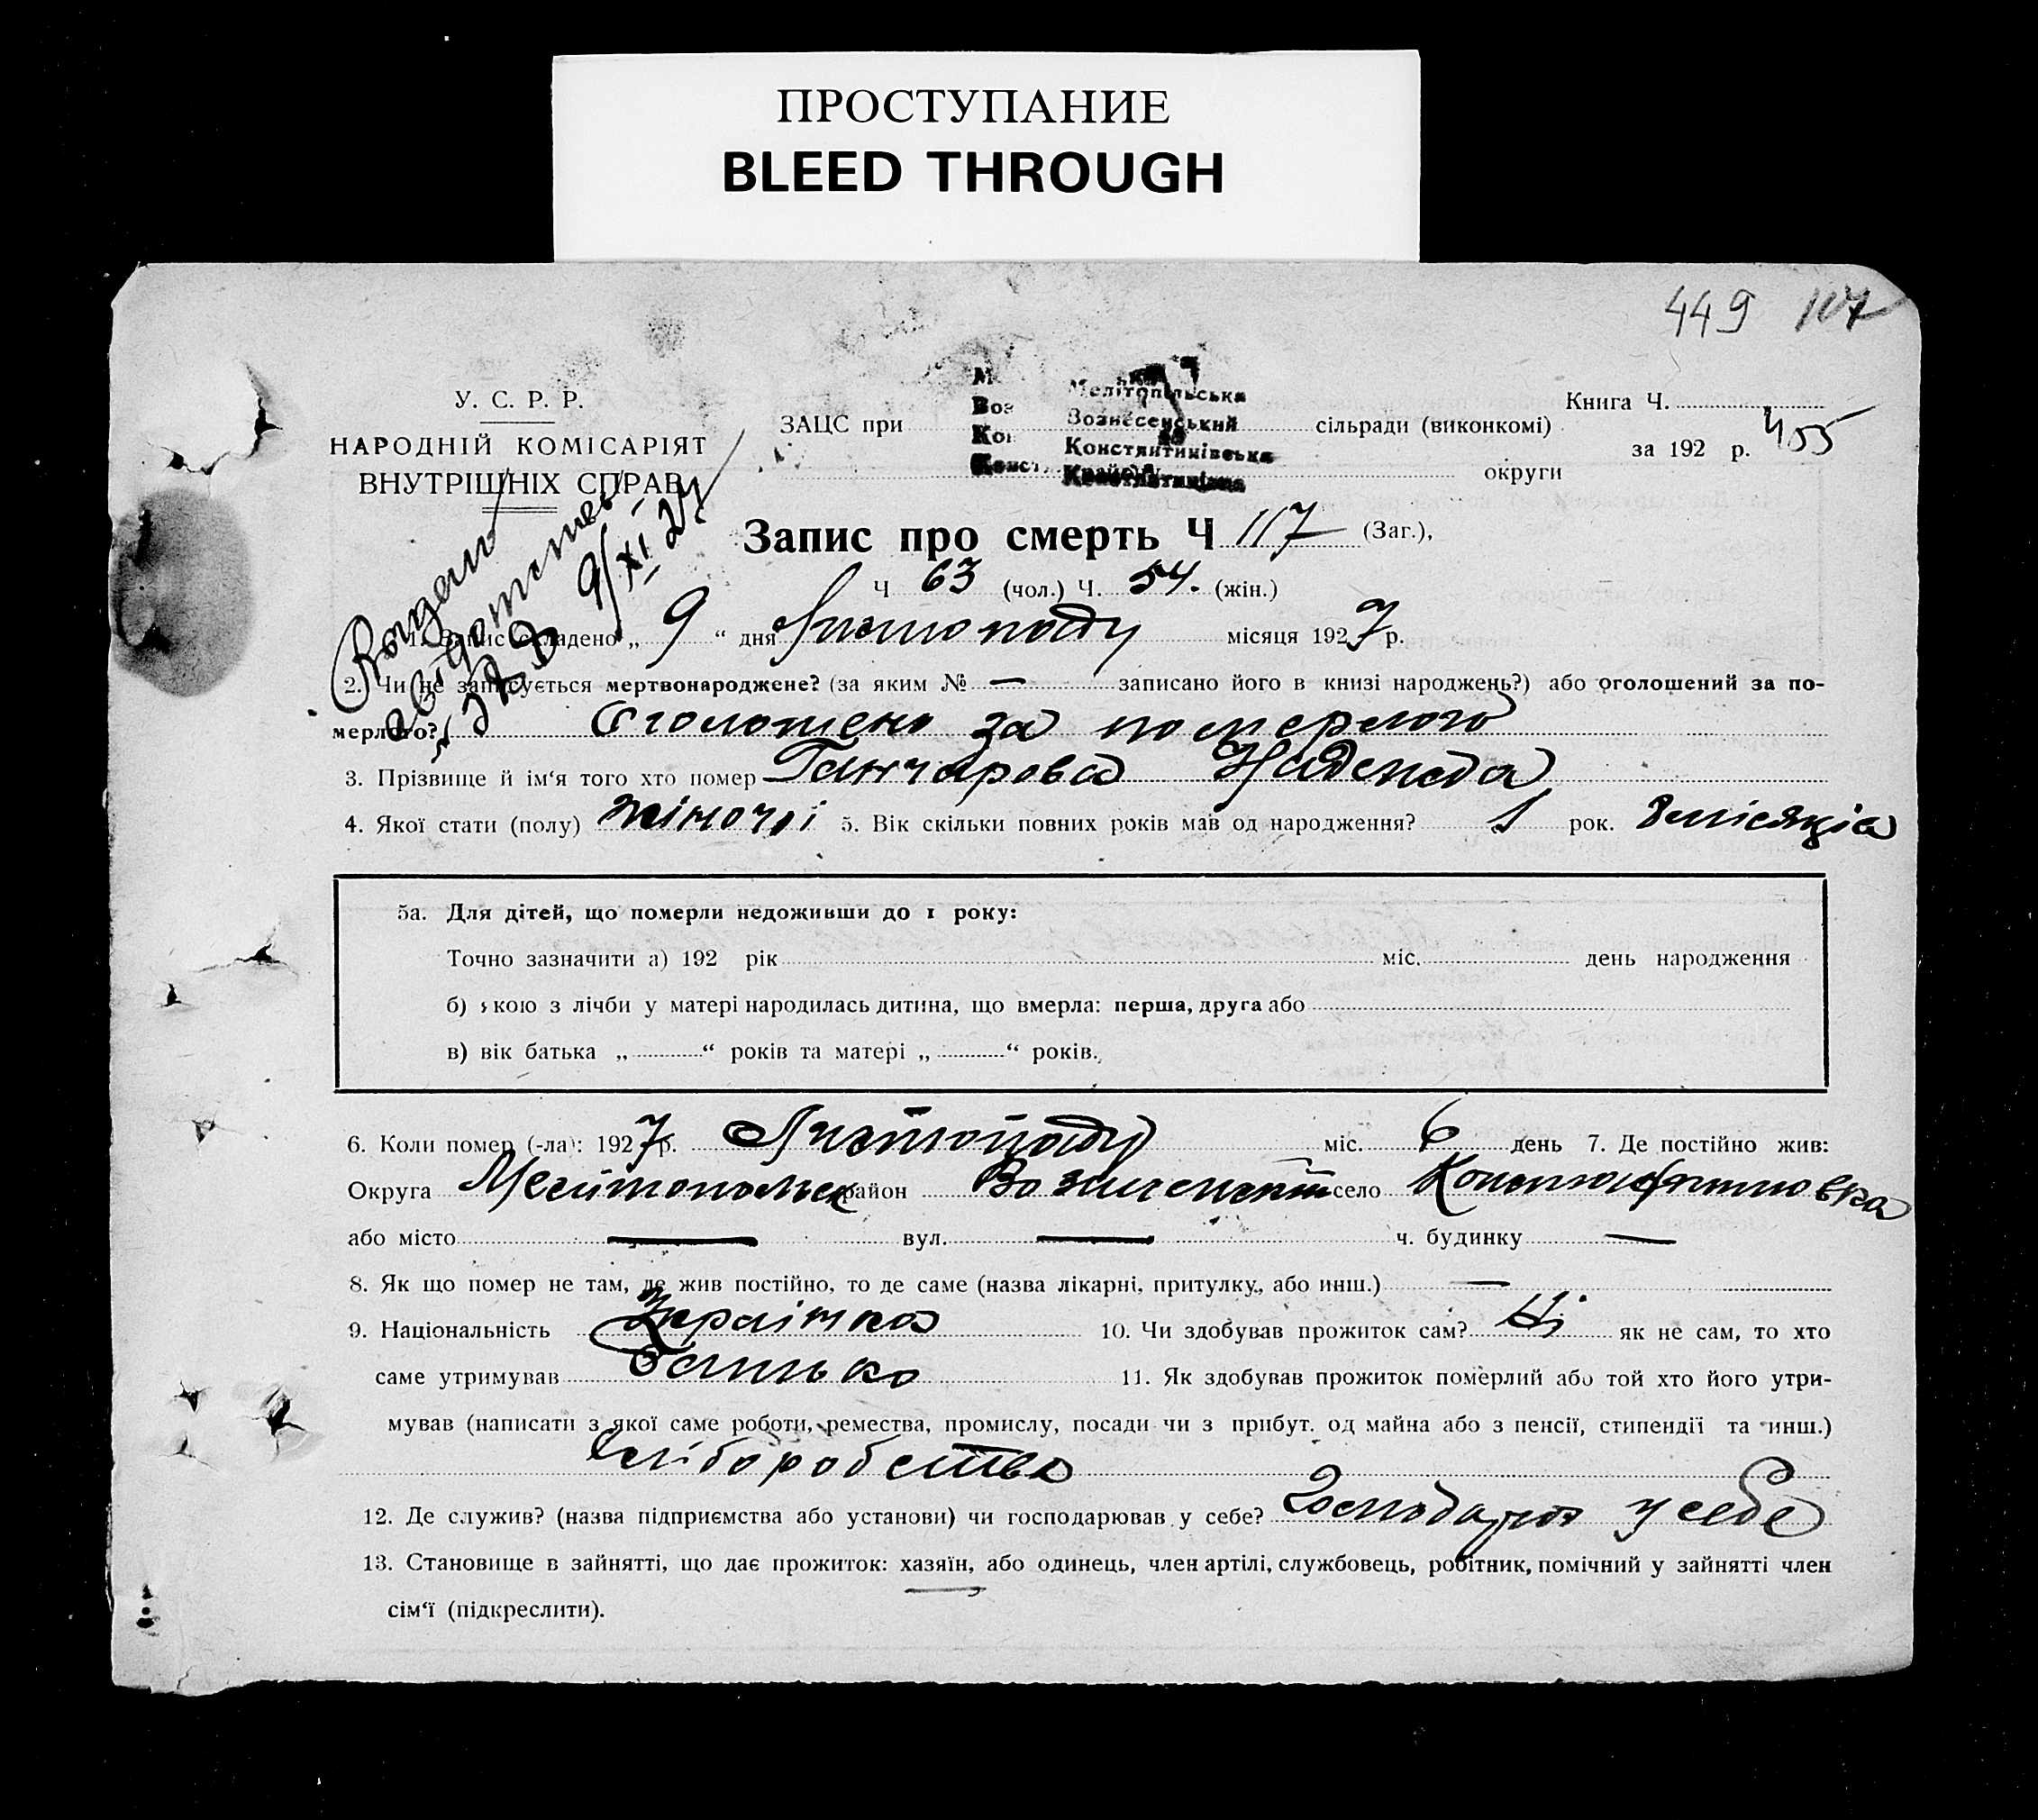 ПРОСТУПАНИЕ
BLEED THROUGH
449 107
У. С. Р. Р.
НАРОДНІЙ КОМІСАРІЯТ
ВНУТРІШНІХ СПРАВ
Книга Ч.
за 192 р. 455
ЗАЦС при Мелітопільська Вознесенський Константинівська сільради (виконкомі)
округи
Запис про смерть Ч 117 (Заг.),
Ч 63 (чол.) Ч. 54. (жін.)
Видано
9/XI 27
1. Запис складено „ 9 “ дня Листопаду місяця 1927 р.
2. Чи не записується мертвонароджене? (за яким № — записано його в книзі народжень?) або оголошений за по-
мерлого? Оголошено за померлого
3. Прізвище й ім‘я того хто помер Ганчарова Надежда
4. Якої стати (полу) жіночої 5. Вік скільки повних років мав од народження? 1 рок. 8 місяців
5а. Для дітей, що померли недоживши до 1 року:
Точно зазначити а) 192 рік міс. день народження
б) якою з лічби у матері народилась дитина, що вмерла: перша, друга або
в) вік батька „ “ років та матері „ “ років.
6. Коли помер (-ла): 1927 р. Листопаду міс. 6 день 7. Де постійно жив:
Округа Мелітопольск район село Константиновка
або місто — вул. — ч. будинку —
8. Як що помер не там, де жив постійно, то де саме (назва лікарні, притулку, або инш.) —
9. Національність Українка 10. Чи здобував прожиток сам? Ні як не сам, то хто
саме утримував батько 11. Як здобував прожиток померлий або той хто його утри-
мував (написати з якої саме роботи, ремества, промислу, посади чи з прибут. од майна або з пенсії, стипендії та инш.)
хліборобство
12. Де служив? (назва підприємства або установи) чи господарював у себе? у себе
13. Становище в зайнятті, що дає прожиток: хазяїн, або одинець, член артілі, службовець, робітник, помічний у зайнятті член
сім‘ї (підкреслити).